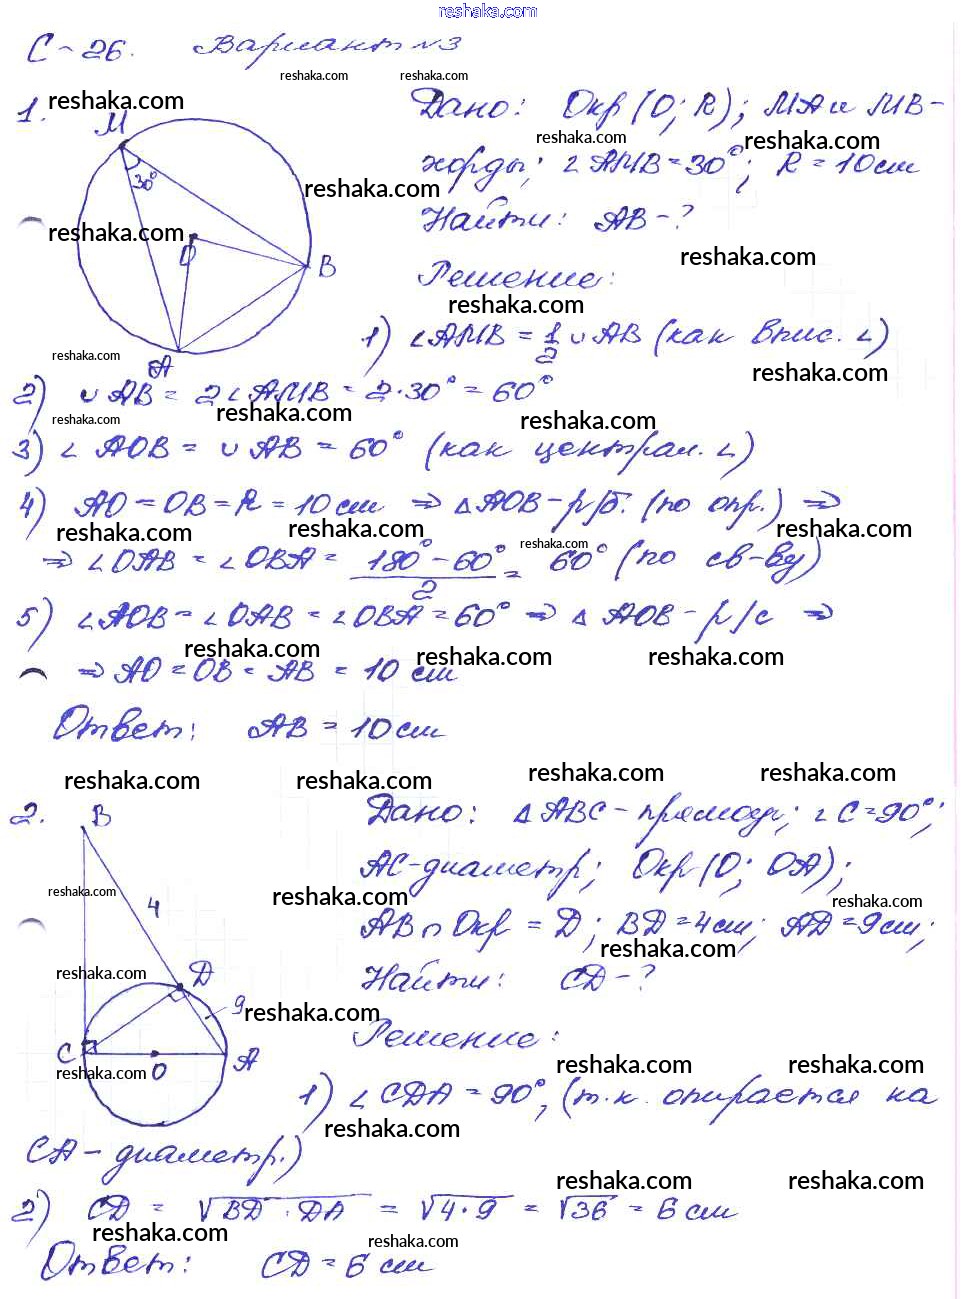 reshaka.com
С-26. Вариант №3
1. Дано: Окр (O; R); MA и MB-
хорды; ∠AMB = 30°; R = 10 см
Найти: AB - ?
Решение:
1) ∠AMB = 1/2 ∪ AB (как впис. ∠)
2) ∪ AB = 2∠AMB = 2·30° = 60°
3) ∠ AOB = ∪ AB = 60° (как централ. ∠)
4) AO = OB = R = 10 см ⇒ △ AOB - р/б. (по опр.) ⇒
⇒ ∠OAB = ∠OBA = (180° - 60°)/2 = 60° (по св-ву)
5) ∠AOB = ∠OAB = ∠OBA = 60° ⇒ △ AOB - р/с ⇒
⇒ AO = OB = AB = 10 см
Ответ: AB = 10 см
M
30°
O
B
A
2. Дано: △ ABC - прямоуг; ∠ C = 90°;
AC - диаметр; Окр (O; OA);
AB ∩ Окр = D; BD = 4 см; AD = 9 см;
Найти: CD - ?
Решение:
1) ∠ CDA = 90°, (т.к. опирается на
CA - диаметр.)
2) CD = √BD · DA = √4·9 = √36 = 6 см
Ответ: CD = 6 см
B
4
D
9
C
O
A
reshaka.com